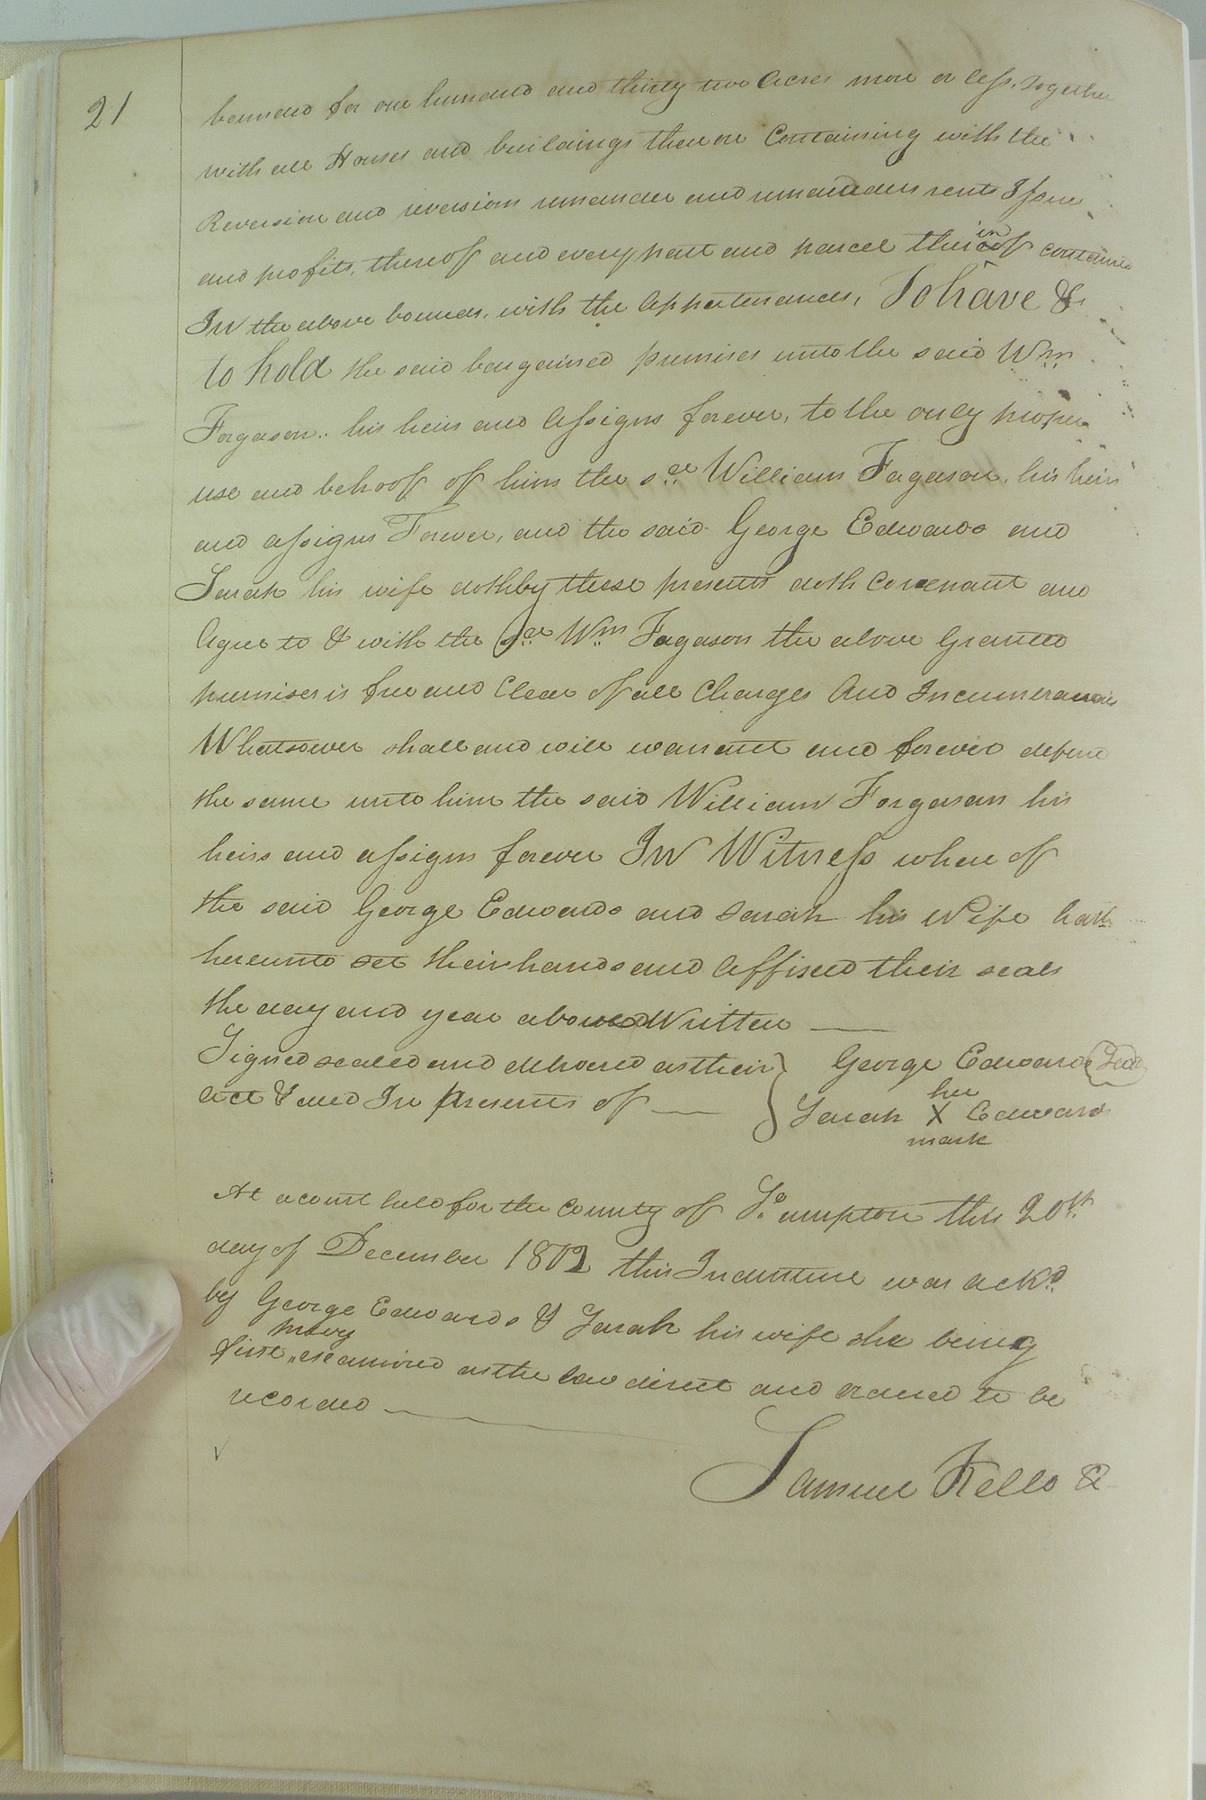 21
bounded for one hundred and thirty two Acres more or less, together
with all Houses and buildings thereon Containing with the
Reversion and reversions remainder and remainders rents Issues
and profits, thereof and every part and parcel there in of contained
In the above bounds, with the Appertenances, To have &
to hold the said bargained premises unto the said Wm
Forgason.. his heirs and Assigns forever, to the only proper
use and behoof of him the sd William Fagason, his heirs
and assigns Forever, and the said George Edwards and
Sarah his wife doth by these presents doth Covenant and
Agree to & with the sd Wm Fagason the above Granted
premises is free and Clear of all Charges And Incumerances
Whatsover shall and will warrant and forever defend
the same unto him the said William Forgason his
heirs and assigns forever In Witness where of
the said George Edwards and Sarah his Wife hath
hereunto set their hands and Affixed their seals
the day and year above Written
Signed sealed and delivered as their } George Edwards Seal
act & deed In presents of } Sarah her X mark Edwards
At a court held for the County of So.umpton this 20th
day of December 1802 this Indenture was ackd
by George Edwards & Sarah his wife she being
first privy examined as the law direct and ordered to be
recorded
Samuel Kello